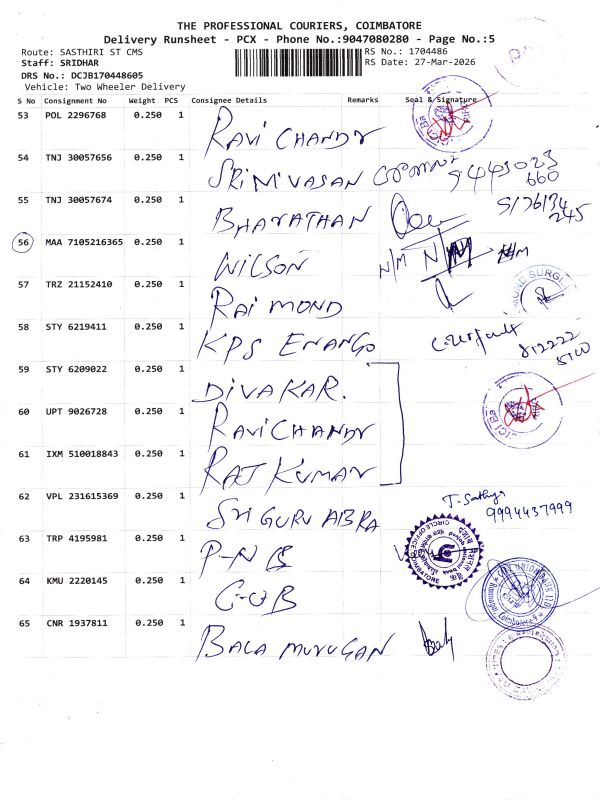 THE PROFESSIONAL COURIERS, COIMBATORE
Delivery Runsheet - PCX - Phone No.:9047080280 - Page No.:5
Route: SASTHIRI ST CMS
RS No.: 1704486
Staff: SRIDHAR
RS Date: 27-Mar-2026
DRS No.: DCJB170448605
Vehicle: Two Wheeler Delivery
S No Consignment No Weight PCS Consignee Details Remarks Seal & Signature
53 POL 2296768 0.250 1 RAVI CHANDR
54 TNJ 30057656 0.250 1 SRINIVASAN 9.443023 660
55 TNJ 30057674 0.250 1 BHARATHAN
56 MAA 7105216365 0.250 1 WILSON N/M N/M
57 TRZ 21152410 0.250 1 RAIMOND
58 STY 6219411 0.250 1 KPS ENANGO
59 STY 6209022 0.250 1 DIVAKAR.
60 UPT 9026728 0.250 1 RAVICHANDR
61 IXM 510018843 0.250 1 RAJKUMAR
62 VPL 231615369 0.250 1 SRI GURU ABRA T. Sathya
9994437999
63 TRP 4195981 0.250 1 P-N B
64 KMU 2220145 0.250 1
65 CNR 1937811 0.250 1 BALA MURUGAN